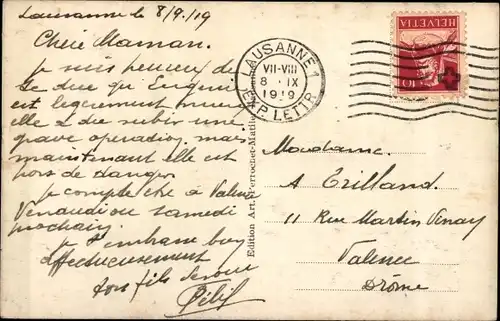 Lausanne le 8/9/19
Chère Maman.
Je suis heureux de
te dire qu'Eugénie
est légèrement mieux
elle a dû subir une
grave opération, mais
maintenant elle est
hors de danger.
Je compte être à Valence
Vendredi ou samedi
prochain.
Je t'embrasse bien
affectueusement
ton fils dévoué
LAUSANNE 1
VII-VIII
8 · IX
1919
EXP. LETTR.
HELVETIA
10
Edition Art. Perrochet-Matile
Madame
A Trilland
11 Rue Martin Vinay
Valence
Drôme